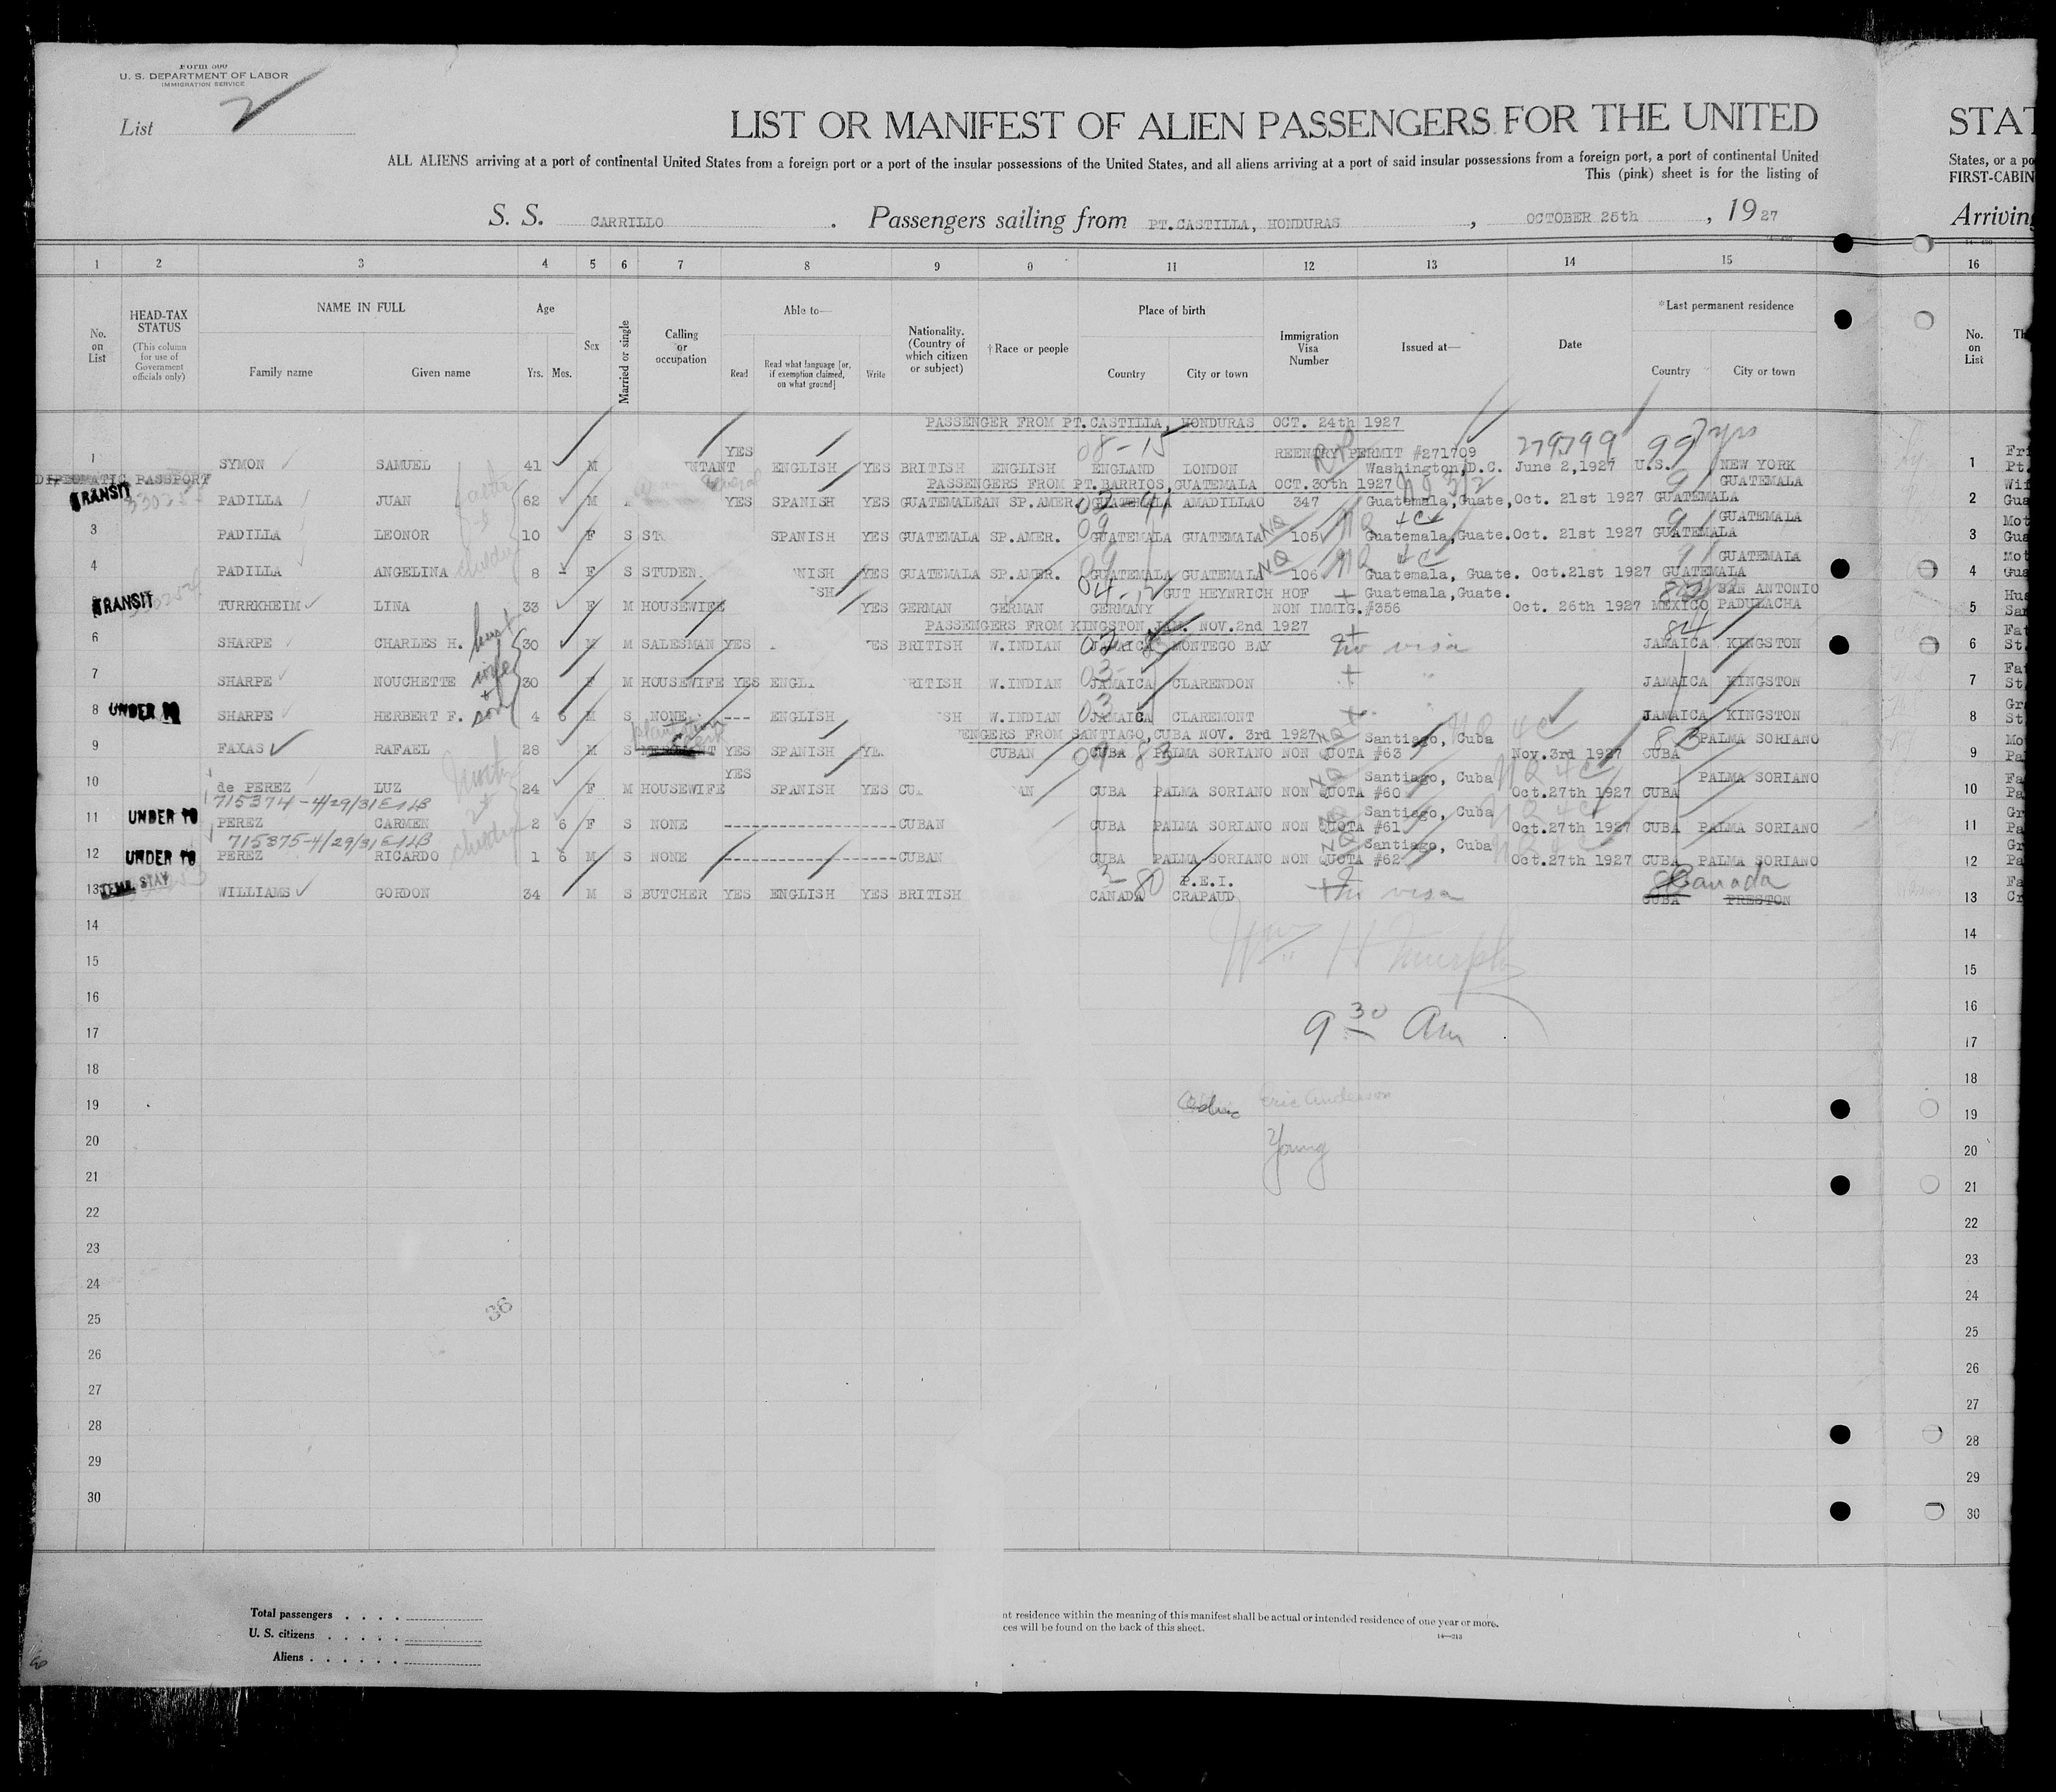 Form 500
U. S. DEPARTMENT OF LABOR
IMMIGRATION SERVICE
List 2
LIST OR MANIFEST OF ALIEN PASSENGERS FOR THE UNITED
STAT
ALL ALIENS arriving at a port of continental United States from a foreign port or a port of the insular possessions of the United States, and all aliens arriving at a port of said insular possessions from a foreign port, a port of continental United
States, or a po
This (pink) sheet is for the listing of
FIRST-CABIN
S. S. CARRILLO. Passengers sailing from PT.CASTILLA, HONDURAS, OCTOBER 25th, 1927
Arriving
1 2 3 4 5 6 7 8 9 0 11 12 13 14 15 16
No. on List
HEAD-TAX STATUS
(This column for use of Government officials only)
NAME IN FULL
Family name Given name
Age
Yrs. Mos.
Sex
Married or single
Calling or occupation
Able to—
Read
Read what language [or, if exemption claimed, on what ground]
Write
Nationality. (Country of which citizen or subject)
†Race or people
Place of birth
Country City or town
Immigration Visa Number
Issued at—
Date
*Last permanent residence
Country City or town
No. on List
PASSENGER FROM PT.CASTILLA, HONDURAS OCT. 24th 1927
08-15 279799 99 7 yrs
YES REENTRY PERMIT #271709
1 SYMON SAMUEL 41 M NTANT ENGLISH YES BRITISH ENGLISH ENGLAND LONDON Washington,D.C. June 2,1927 U.S. NEW YORK 1
DIPLOMATIC PASSPORT
PASSENGERS FROM PT.BARRIOS,GUATEMALA OCT.30th 1927
GUATEMALA
TRANSIT PADILLA JUAN 62 M YES SPANISH YES GUATEMALEAN SP.AMER. GUATEMALA AMADILLAO 347 Guatemala,Guate, Oct. 21st 1927 GUATEMALA 2
GUATEMALA
3 PADILLA LEONOR 10 F S ST SPANISH YES GUATEMALA SP.AMER. GUATEMALA GUATEMALA NQ 105 Guatemala,Guate. Oct. 21st 1927 GUATEMALA 3
GUATEMALA
4 PADILLA ANGELINA 8 - F S STUDEN NISH YES GUATEMALA SP.AMER. GUATEMALA GUATEMALA NQ 106 Guatemala, Guate. Oct.21st 1927 GUATEMALA 4
SH GUT HEYNRICH HOF Guatemala,Guate. SAN ANTONIO
TRANSIT TURRKHEIM LINA 33 F M HOUSEWIFE YES GERMAN GERMAN GERMANY NON IMMIG.#356 Oct. 26th 1927 MEXICO PADUEACHA 5
PASSENGERS FROM KINGSTON,JAM. NOV.2nd 1927
6 SHARPE CHARLES H. 30 M M SALESMAN YES YES BRITISH W.INDIAN JAMAICA MONTEGO BAY No visa JAMAICA KINGSTON 6
7 SHARPE NOUCHETTE wife + 30 F M HOUSEWIFE YES ENGL RITISH W.INDIAN JAMAICA CLARENDON " JAMAICA KINGSTON 7
8 UNDER 10 SHARPE HERBERT F. son 4 6 M S NONE --- ENGLISH SH W.INDIAN JAMAICA CLAREMONT JAMAICA KINGSTON 8
ENGERS FROM SANTIAGO,CUBA NOV. 3rd 1927
Santiago, Cuba PALMA SORIANO
9 FAXAS RAFAEL 28 M S YES SPANISH YE CUBAN CUBA PALMA SORIANO NON QUOTA #63 Nov.3rd 1927 CUBA 9
YES Santiago, Cuba PALMA SORIANO
10 de PEREZ LUZ 24 F M HOUSEWIFE SPANISH YES CU AN CUBA PALMA SORIANO NON QUOTA #60 Oct.27th 1927 CUBA 10
715374-4/29/31
Santiago, Cuba
11 UNDER 10 PEREZ CARMEN 2 6 F S NONE ------------------ CUBAN CUBA PALMA SORIANO NON QUOTA #61 Oct.27th 1927 CUBA PALMA SORIANO 11
715375-4/29/31
Santiago, Cuba
12 UNDER 10 PEREZ RICARDO 1 6 M S NONE ------------------ CUBAN CUBA PALMA SORIANO NON QUOTA #62 Oct.27th 1927 CUBA PALMA SORIANO 12
P.E.I. Canada
13 TEMP. STAY WILLIAMS GORDON 34 M S BUTCHER YES ENGLISH YES BRITISH CANADA CRAPAUD No visa CUBA PRESTON 13
14 14
Wm H Murphy
15 15
16 16
9 30 Am
17 17
18 18
Eric Anderson
19 19
Young
20 20
21 21
22 22
23 23
24 24
36
25 25
26 26
27 27
28 28
29 29
30 30
Total passengers
U. S. citizens
Aliens
nt residence within the meaning of this manifest shall be actual or intended residence of one year or more.
ces will be found on the back of this sheet.